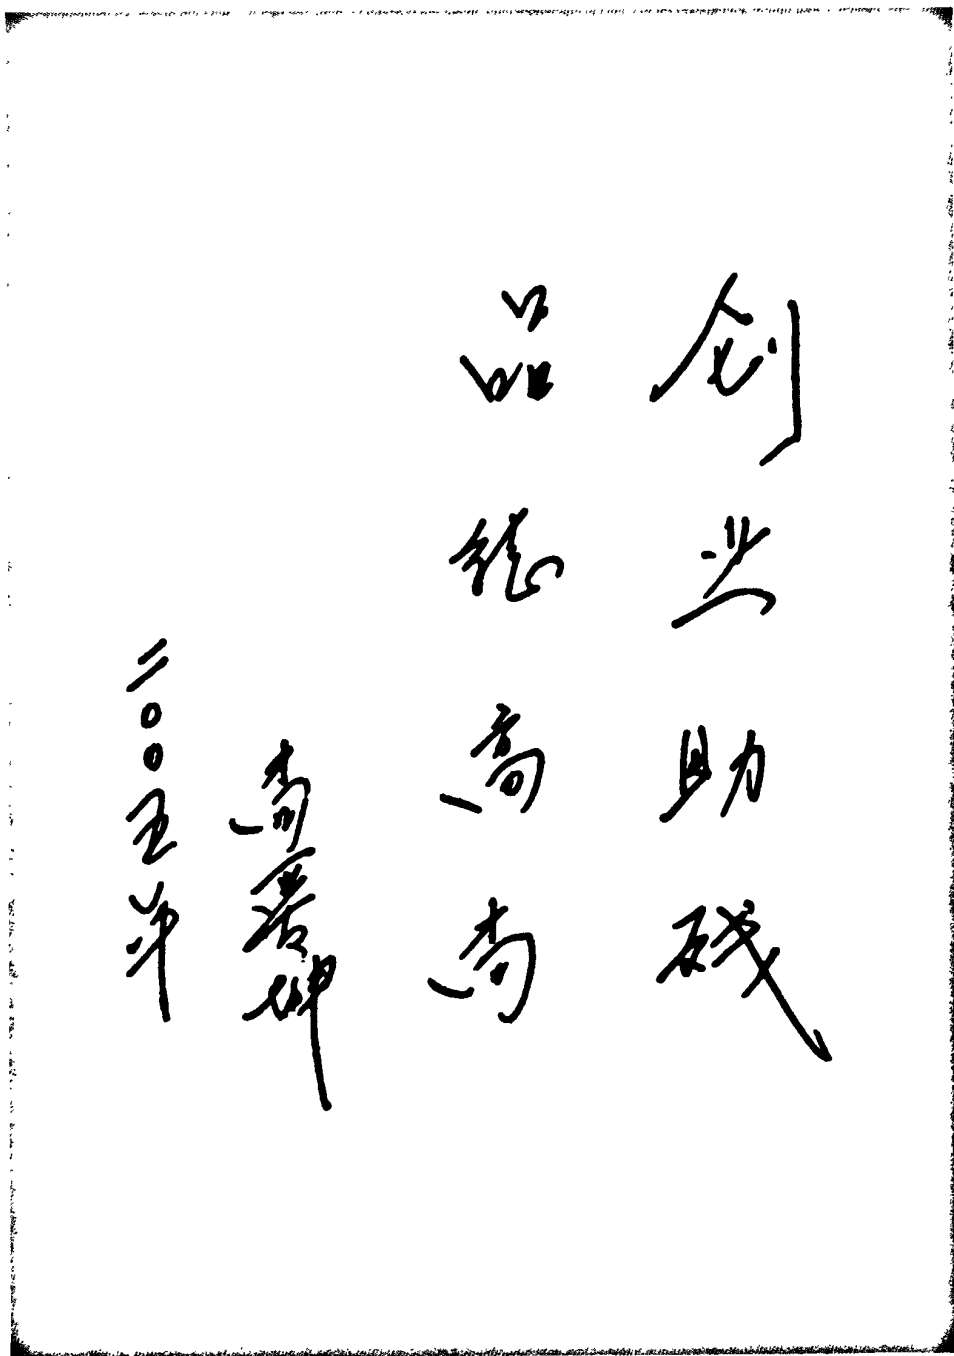 创业助残
品德高尚
二〇〇五年